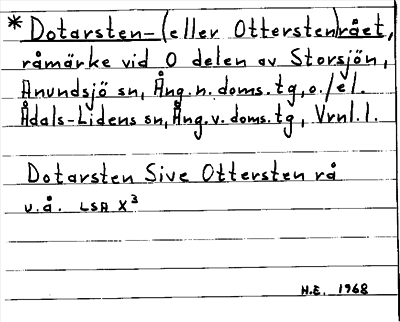 * Dotarsten-(eller Ottersten)rået,
råmärke vid O delen av Storsjön,
Anundsjö sn, Ång.n.doms.tg, o./el.
Ådals-Lidens sn, Ång.v.doms.tg, Vrnl.l.
Dotarsten Sive Ottersten rå
u.å. LSA X³
H.E. 1968